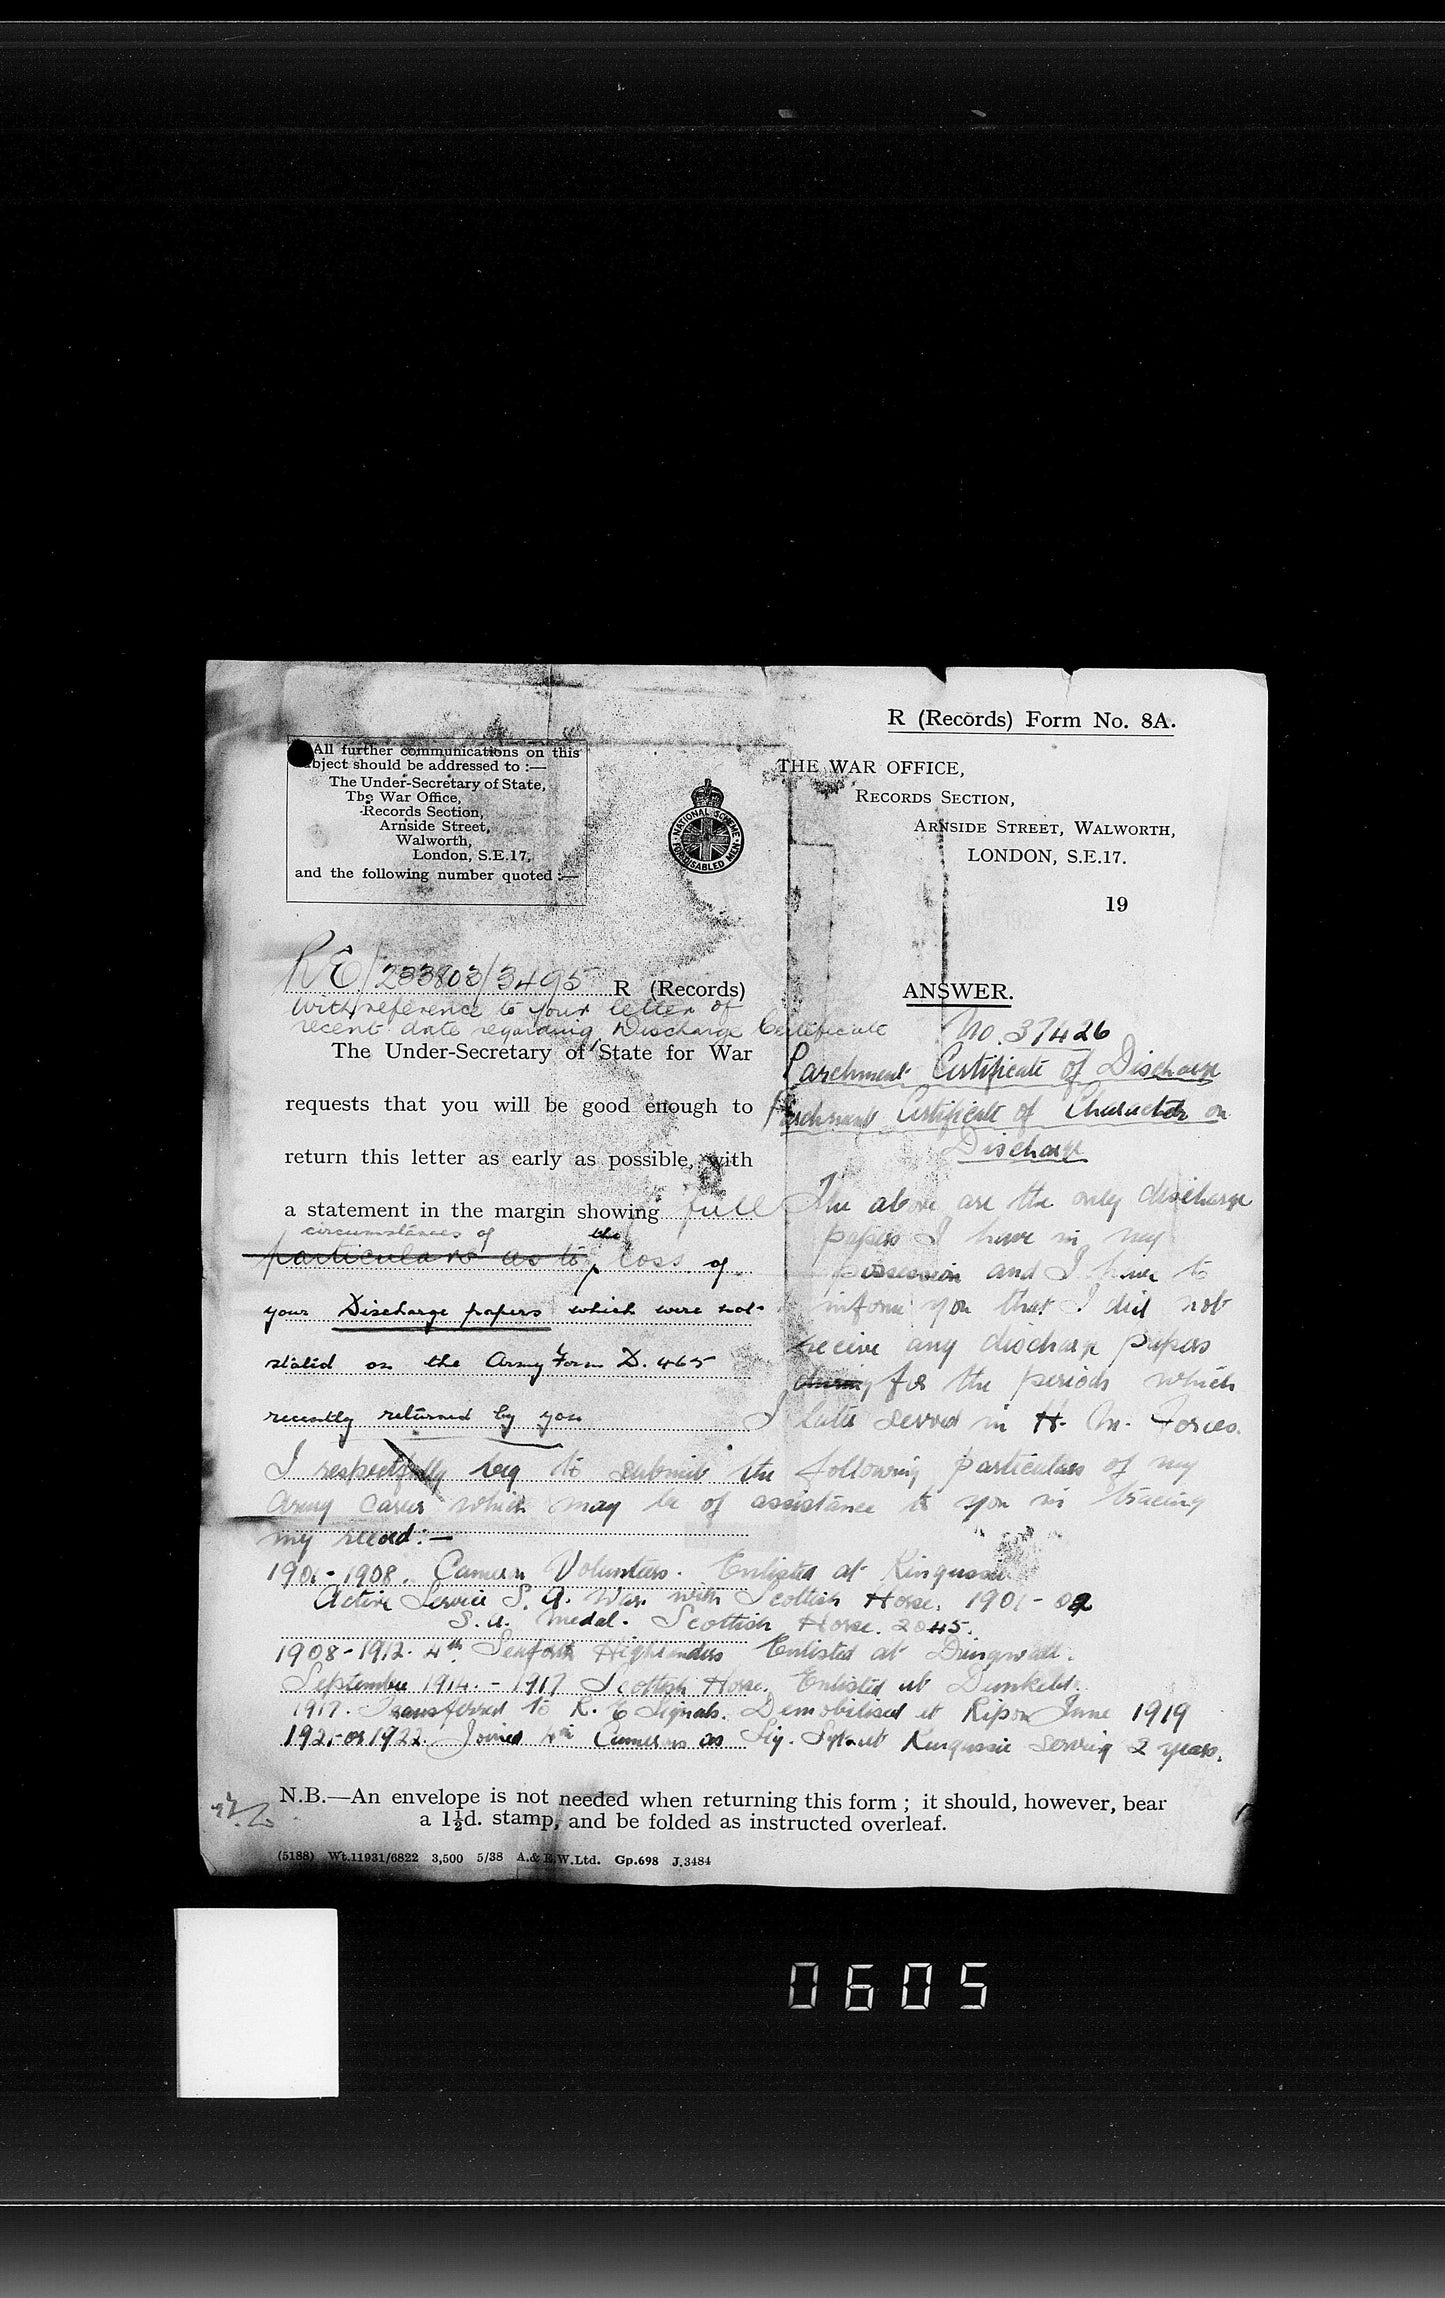 R (Records) Form No. 8A.
All further communications on this
subject should be addressed to :—
The Under-Secretary of State,
The War Office,
Records Section,
Arnside Street,
Walworth,
London, S.E.17,
and the following number quoted :—
NATIONAL SCHEME
FOR DISABLED MEN
THE WAR OFFICE,
RECORDS SECTION,
ARNSIDE STREET, WALWORTH,
LONDON, S.E.17.
19
RE/233803/3495 R (Records)
With reference to your letter of
recent date regarding Discharge Certificate
The Under-Secretary of State for War
requests that you will be good enough to
return this letter as early as possible, with
a statement in the margin showing full
circumstances of the
particulars as to loss of
your Discharge papers which were not
stated on the Army Form D. 465
recently returned by you
ANSWER.
No. 37426
Parchment Certificate of Discharge
Parchment Certificate of Character on
Discharge
The above are the only discharge
papers I have in my
possession and I have to
inform you that I did not
receive any discharge papers
during for the periods which
I later served in H. M. Forces.
I respectfully beg to submit the following particulars of my
Army career which may be of assistance to you in tracing
my record:—
1901-1908. Cameron Volunteers. Enlisted at Kingussie
Active Service S. A. War with Scottish Horse. 1901-02
S. A. Medal. Scottish Horse. 2045.
1908-1912. 4th Seaforth Highlanders Enlisted at Dingwall.
September 1914. - 1917 Scottish Horse. Enlisted at Dunkeld.
1917. Transferred to R. E Signals. Demobilised at Ripon June 1919
1921-or 1922. Joined 4th Camerons as Sig. Sgt. at Kingussie serving 2 years.
N.B.—An envelope is not needed when returning this form ; it should, however, bear
a 1½d. stamp, and be folded as instructed overleaf.
(5188) Wt.11931/6822 3,500 5/38 A.& E.W.Ltd. Gp.698 J.3484
0605